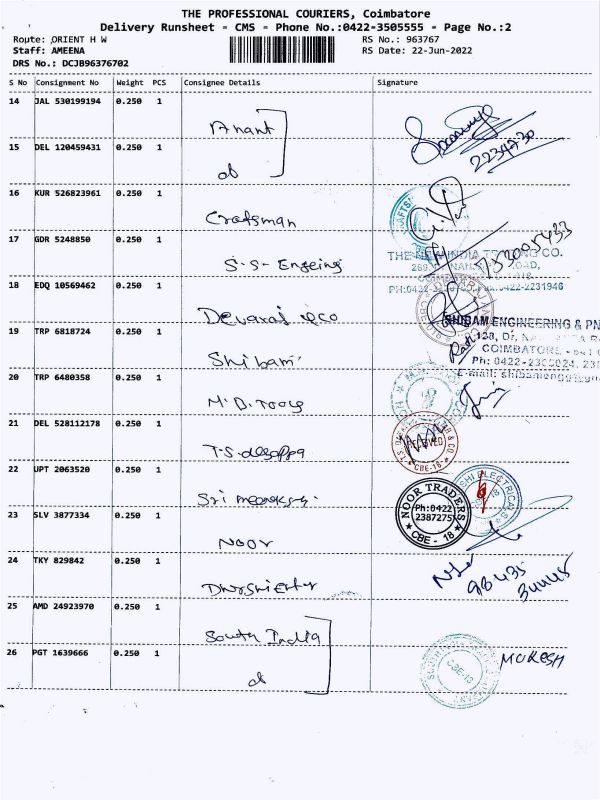 THE PROFESSIONAL COURIERS, Coimbatore
Delivery Runsheet - CMS - Phone No.:0422-3505555 - Page No.:2
Route: ORIENT H W RS No.: 963767
Staff: AMEENA RS Date: 22-Jun-2022
DRS No.: DCJB96376702
S No Consignment No Weight PCS Consignee Details Signature
14 JAL 530199194 0.250 1
Anant
15 DEL 120459431 0.250 1
do
2234730
16 KUR 526823961 0.250 1
Craftsman
17 GDR 5248850 0.250 1
S.S. Engeing
THE NEW INDIA TRADING CO.
18 EDQ 10569462 0.250 1
Devaraj &co
19 TRP 6818724 0.250 1
Shibam
SHIBAM ENGINEERING & PN
COIMBATORE
20 TRP 6480358 0.250 1
M.D. Tools
21 DEL 528112178 0.250 1
T.S.
RECEIVED
CBE-18
22 UPT 2063520 0.250 1
Sri
SHI ELECTRICALS
NOOR TRADERS
Ph:0422
2387275
CBE - 18
23 SLV 3877334 0.250 1
NOOR
24 TKY 829842 0.250 1
98435
34445
25 AMD 24923970 0.250 1
South India
26 PGT 1639666 0.250 1
do
CBE-18
MUKESH